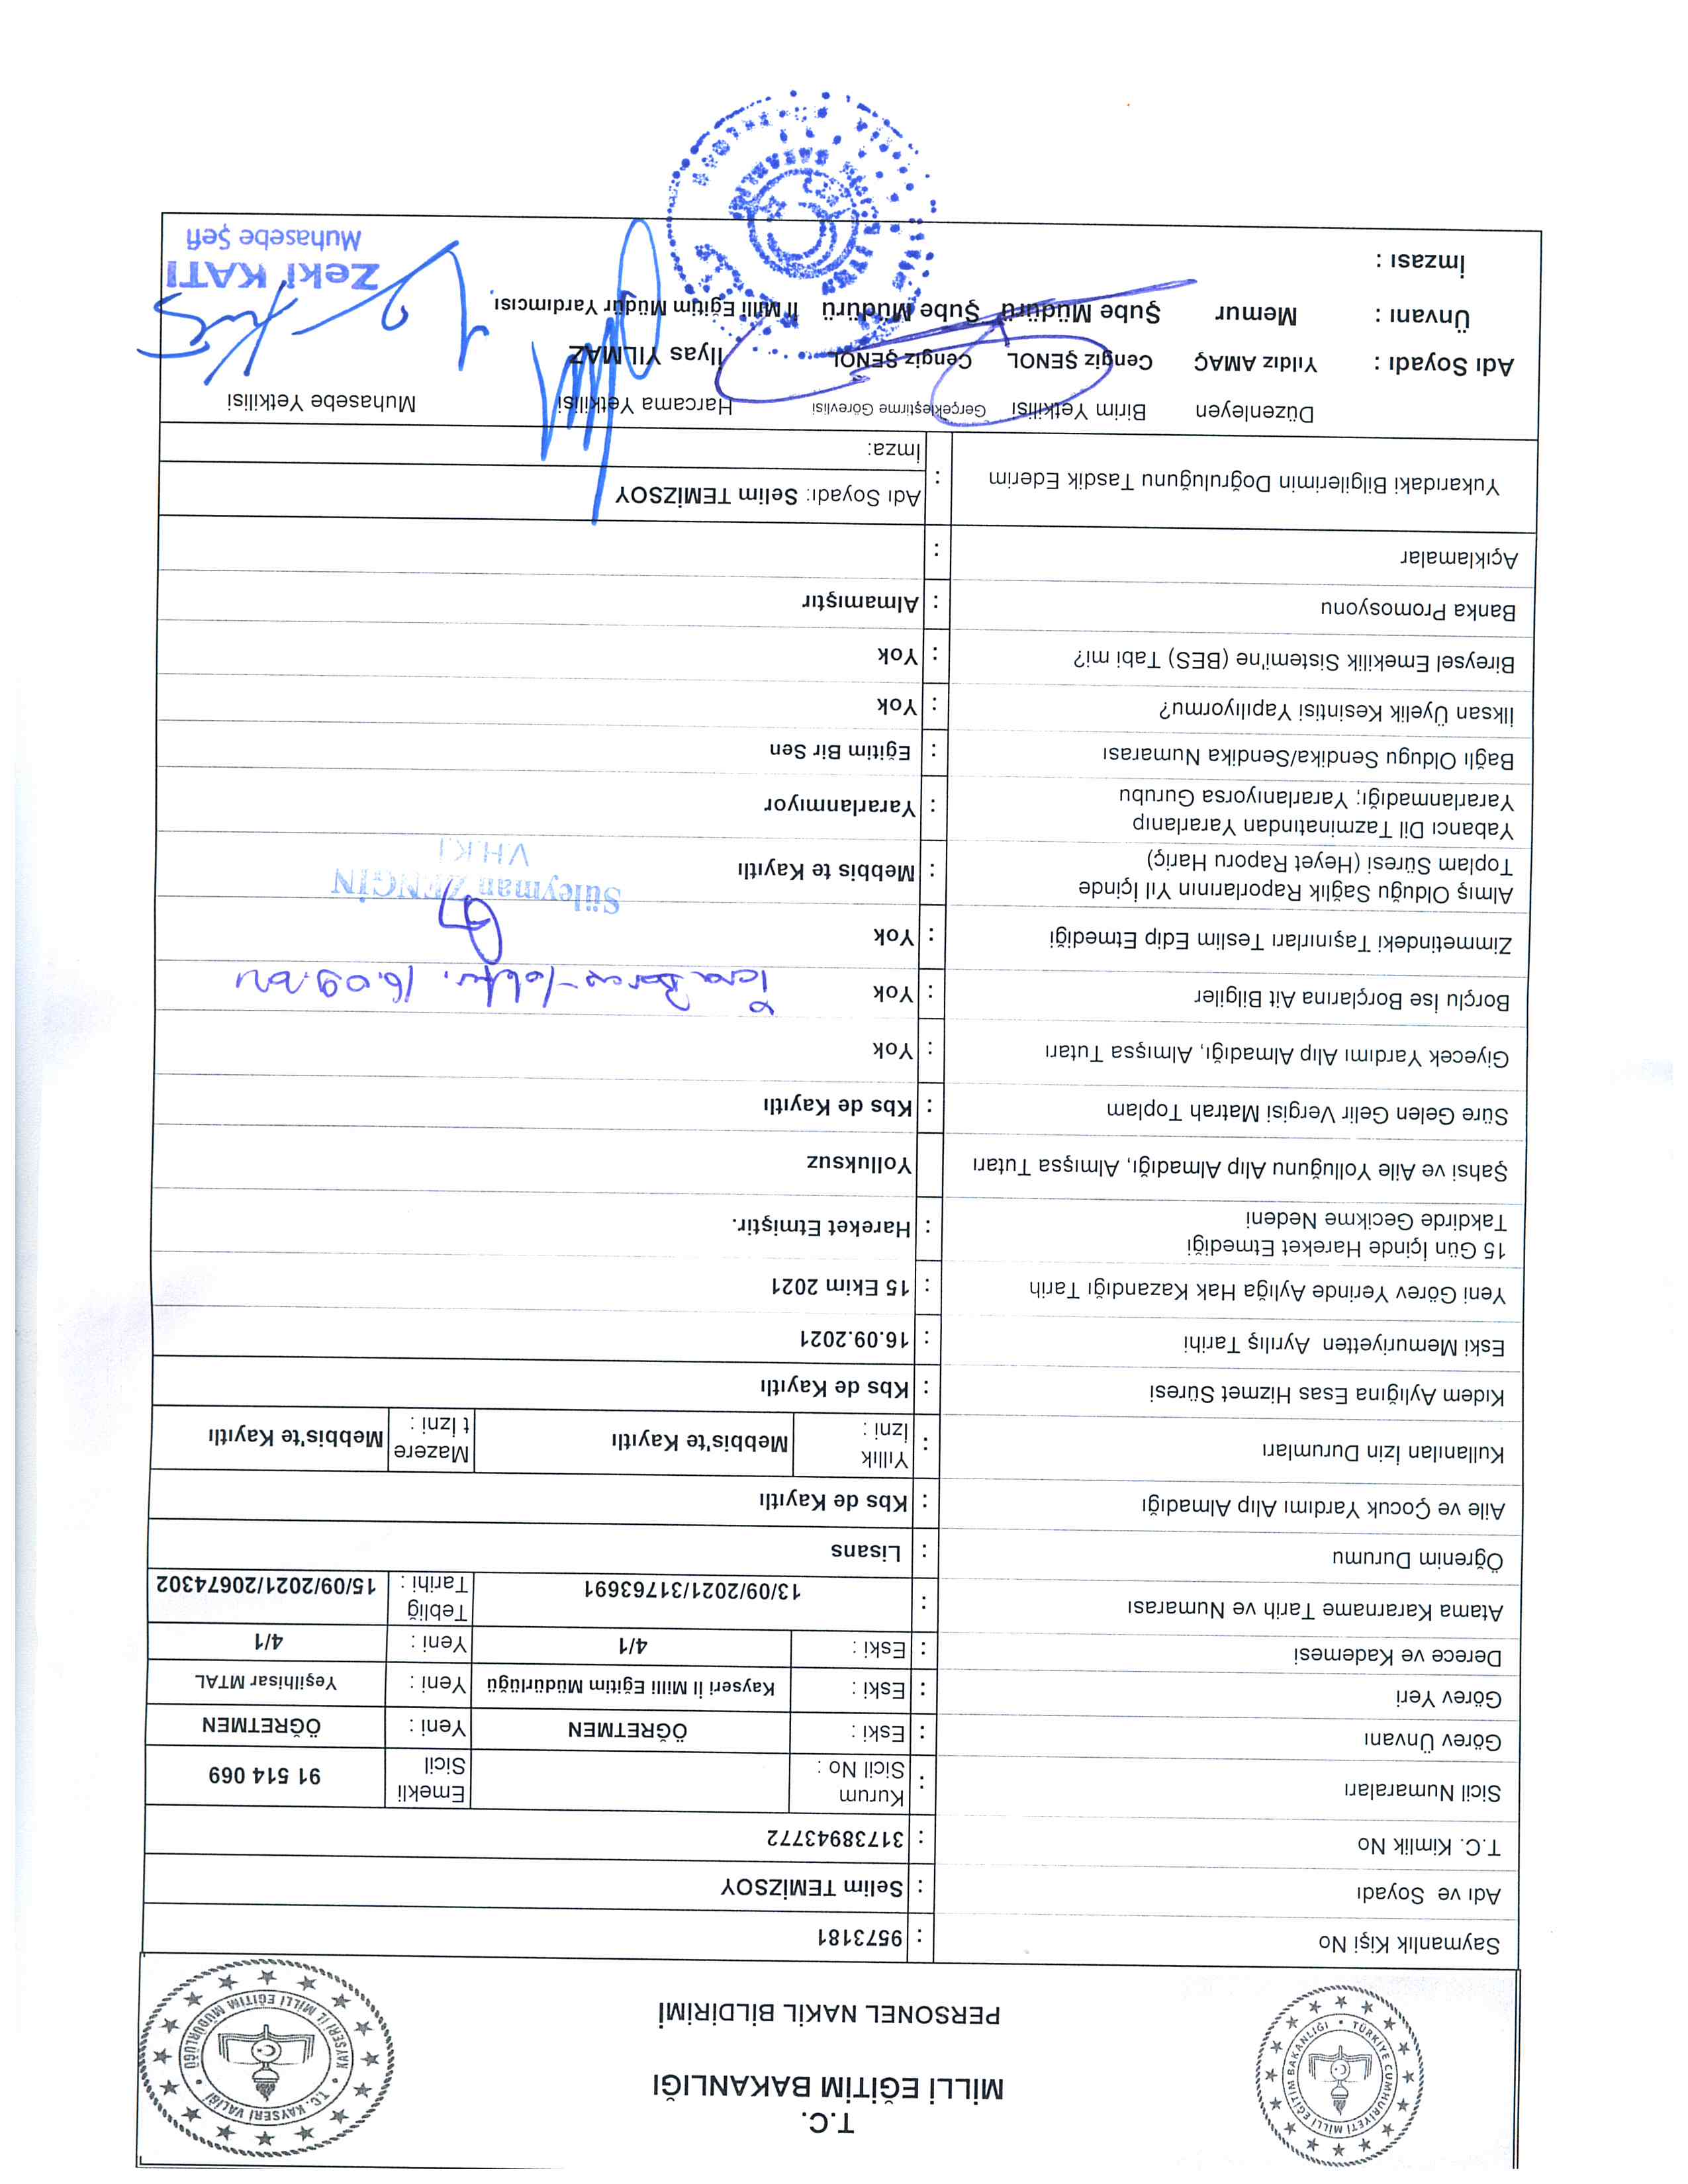 T.C.
MİLLİ EĞİTİM BAKANLIĞI
PERSONEL NAKİL BİLDİRİMİ
TÜRKİYE CUMHURİYETİ MİLLİ EĞİTİM BAKANLIĞI
T.C. KAYSERİ VALİLİĞİ
KAYSERİ İL MİLLİ EĞİTİM MÜDÜRLÜĞÜ
Saymanlık Kişi No : 9573181
Adı ve Soyadı : Selim TEMİZSOY
T.C. Kimlik No : 31738943772
Sicil Numaraları : Kurum Sicil No : Emekli Sicil 91 514 069
Görev Ünvanı : Eski : ÖĞRETMEN Yeni : ÖĞRETMEN
Görev Yeri : Eski : Kayseri İl Milli Eğitim Müdürlüğü Yeni : Yeşilhisar MTAL
Derece ve Kademesi : Eski : 4/1 Yeni : 4/1
Atama Kararname Tarih ve Numarası : 13/09/2021/31763691 Tebliğ Tarihi : 15/09/2021/20674302
Öğrenim Durumu : Lisans
Aile ve Çocuk Yardımı Alıp Almadığı : Kbs de Kayıtlı
Kullanılan İzin Durumları : Yıllık İzni : Mebbis'te Kayıtlı Mazere t İzni : Mebbis'te Kayıtlı
Kıdem Aylığına Esas Hizmet Süresi : Kbs de Kayıtlı
Eski Memuriyetten Ayrılış Tarihi : 16.09.2021
Yeni Görev Yerinde Aylığa Hak Kazandığı Tarih : 15 Ekim 2021
15 Gün İçinde Hareket Etmediği
Takdirde Gecikme Nedeni : Hareket Etmiştir.
Şahsi ve Aile Yolluğunu Alıp Almadığı, Almışsa Tutarı Yolluksuz
Süre Gelen Gelir Vergisi Matrah Toplam : Kbs de Kayıtlı
Giyecek Yardımı Alıp Almadığı, Almışsa Tutarı : Yok
Borçlu İse Borçlarına Ait Bilgiler : Yok
İcra Borcu Yoktur. 16.09.2021
Zimmetindeki Taşınırları Teslim Edip Etmediği : Yok
Süleyman ZENGİN
V.H.K.İ
Almış Olduğu Sağlık Raporlarının Yıl İçinde
Toplam Süresi (Heyet Raporu Hariç) : Mebbis te Kayıtlı
Yabancı Dil Tazminatından Yararlanıp
Yararlanmadığı; Yararlanıyorsa Gurubu : Yararlanmıyor
Bağlı Oldugu Sendika/Sendika Numarası : Eğitim Bir Sen
İlksan Üyelik Kesintisi Yapılıyormu? : Yok
Bireysel Emekilik Sistemi'ne (BES) Tabi mi? : Yok
Banka Promosyonu : Almamıştır
Açıklamalar :
Yukarıdaki Bilgilerimin Doğruluğunu Tasdik Ederim : Adı Soyadı: Selim TEMİZSOY
İmza:
Düzenleyen Birim Yetkilisi Gerçekleştirme Görevlisi Harcama Yetkilisi Muhasebe Yetkilisi
Adı Soyadı : Yıldız AMAÇ Cengiz ŞENOL Cengiz ŞENOL İlyas YILMAZ
Ünvanı : Memur Şube Müdürü Şube Müdürü İl Milli Eğitim Müdür Yardımcısı
İmzası :
Zeki KATI
Muhasebe Şefi